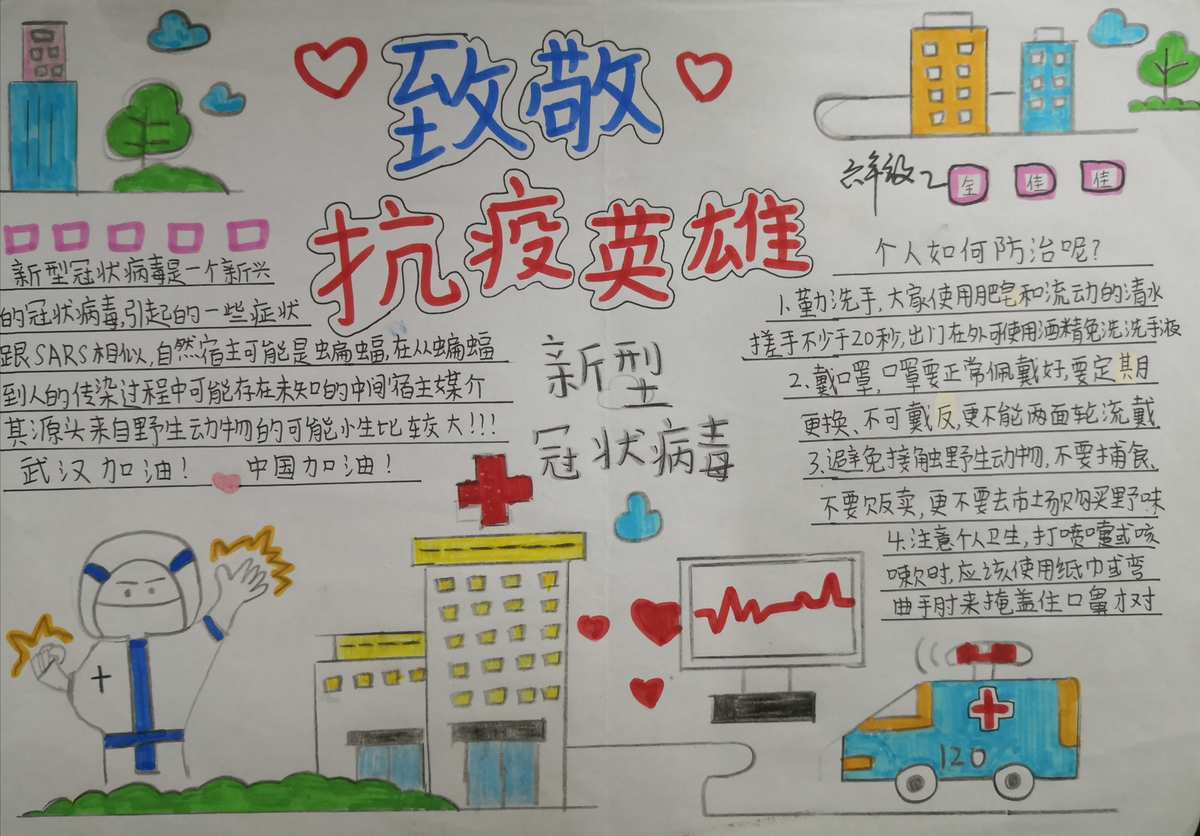 致敬
抗疫英雄
六年级2
全 佳 佳
新型冠状病毒是一个新兴
的冠状病毒,引起的一些症状
跟SARS相似,自然宿主可能是蝙蝠,在从蝙蝠
到人的传染过程中可能存在未知的中间宿主媒介
其源头来自野生动物的可能小生比较大!!!
武汉加油! 中国加油!
新型
冠状病毒
个人如何防治呢?
1.勤洗手,大家使用肥皂和流动的清水
搓手不少于20秒,出门在外可使用酒精免洗洗手液
2.戴口罩,口罩要正常佩戴好,要定其月
更换、不可戴反,更不能两面轮流戴
3.避免接触野生动物,不要捕食、
不要贩卖,更不要去市场购买野味
4.注意个人卫生,打喷嚏或咳
嗽时,应该使用纸巾或弯
曲手肘来掩盖住口鼻才对
120